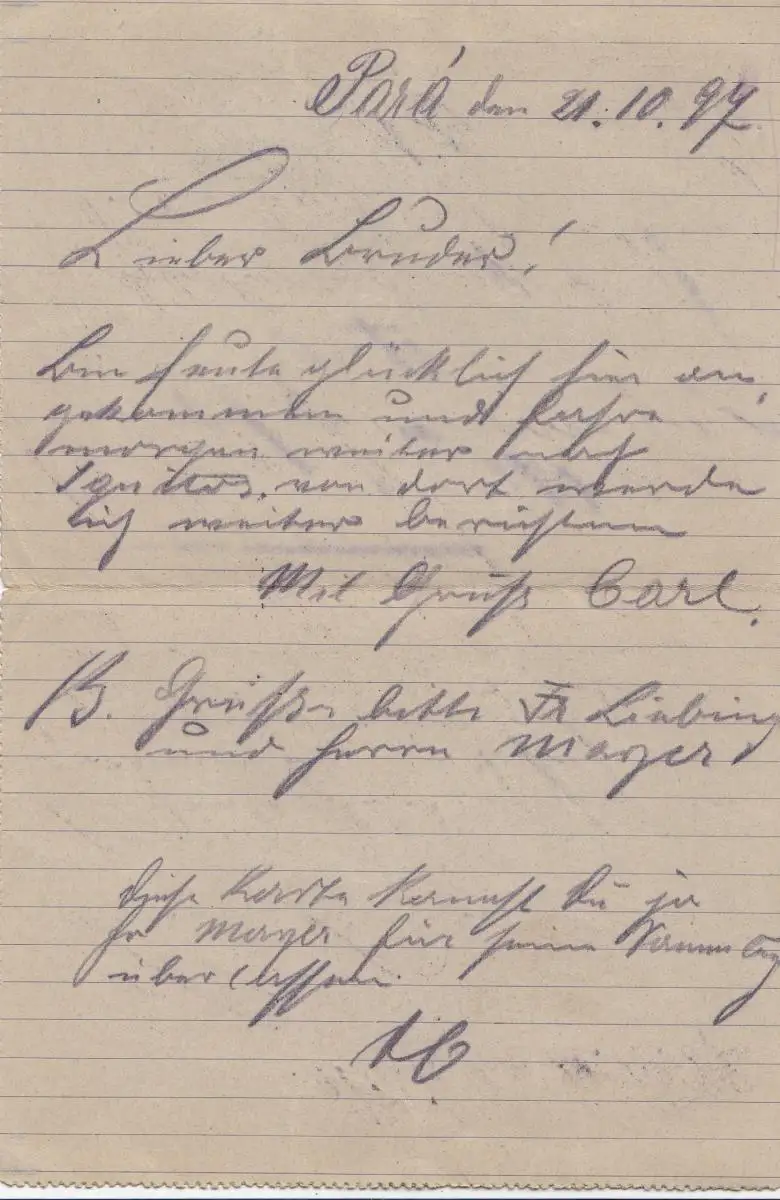 Pará den 21.10.97
Lieber Bruder!
Bin heute glücklich hier an,
gekommen und fahre
morgen weiter nach
Iquitos, von dort werde
ich weiter berichten
Mit Gruß Carl.
Grüße bitte Fr Liebing
und Herrn Mayer
diese Karte kannst Du ja
Hr Mayer für seine Sammlung
überlassen.